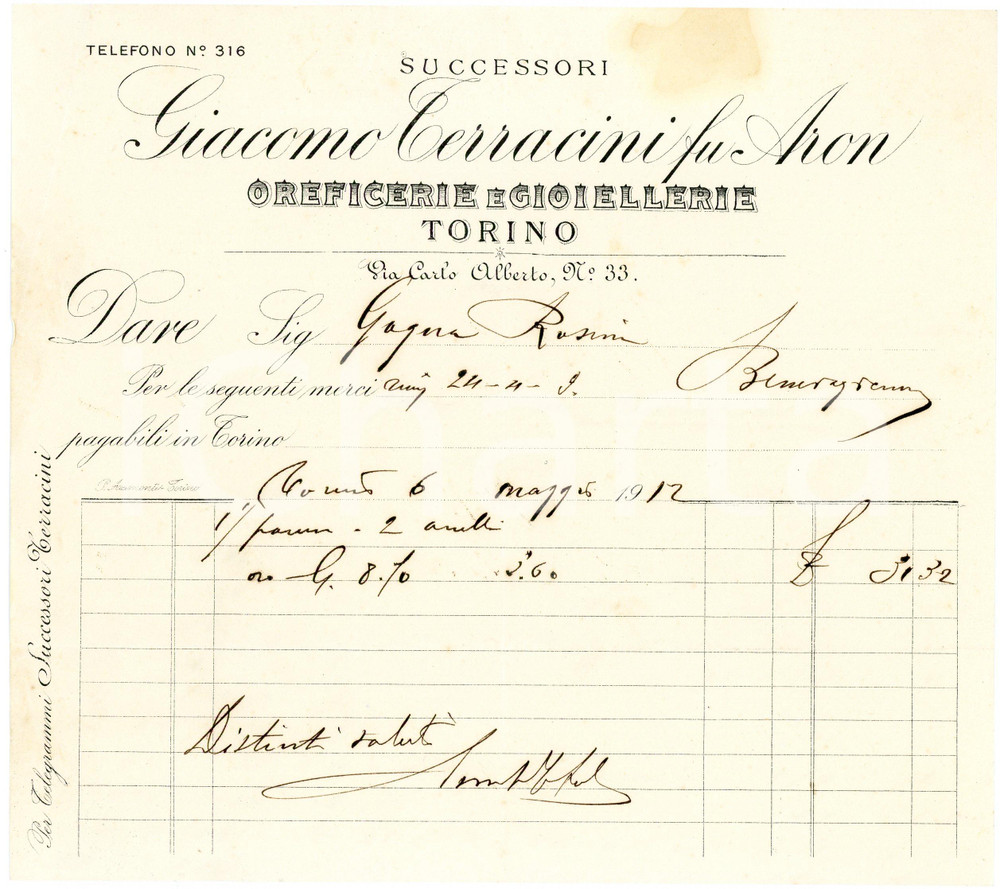 TELEFONO Nº 316
SUCCESSORI
Giacomo Terracini fu Aron
OREFICERIE E GIOIELLERIE
TORINO
Via Carlo Alberto, Nº 33.
Dare Sig Gagna Rosini
Per le seguenti merci 24-4-
pagabili in Torino
Torino 6 maggio 1912
2 anelli
oro G. 8.70 3.60 £ 31 32
Distinti saluti
Per Telegrammi Successori Terracini